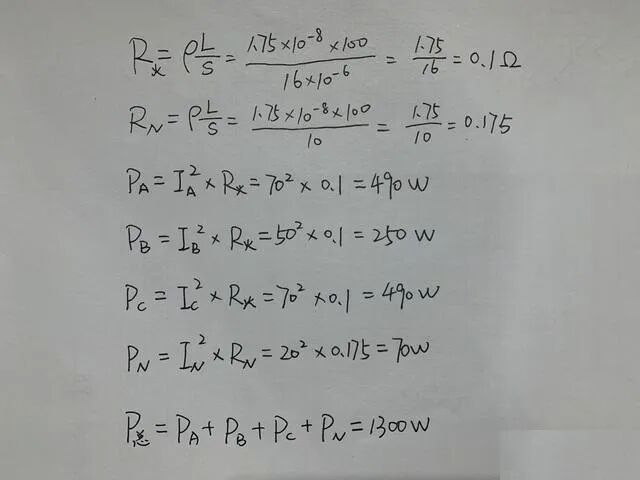 R火 = ρL/S = 1.75×10⁻⁸×100/16×10⁻⁶ = 1.75/16 = 0.1Ω
R_N = ρL/S = 1.75×10⁻⁸×100/10 = 1.75/10 = 0.175
P_A = I_A² × R火 = 70² × 0.1 = 490 W
P_B = I_B² × R火 = 50² × 0.1 = 250 W
P_C = I_C² × R火 = 70² × 0.1 = 490 W
P_N = I_N² × R_N = 20² × 0.175 = 70W
P总 = P_A + P_B + P_C + P_N = 1300W